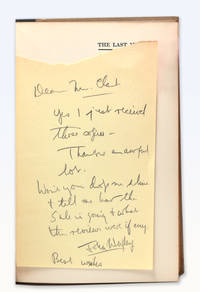 THE LAST
Dear Mr. Clark
Yes I just received
three copies –
Thanks an awful
lot.
Won't you drop me a line
& tell me how the
Sale is going & what
the reviews were if any
Best wishes